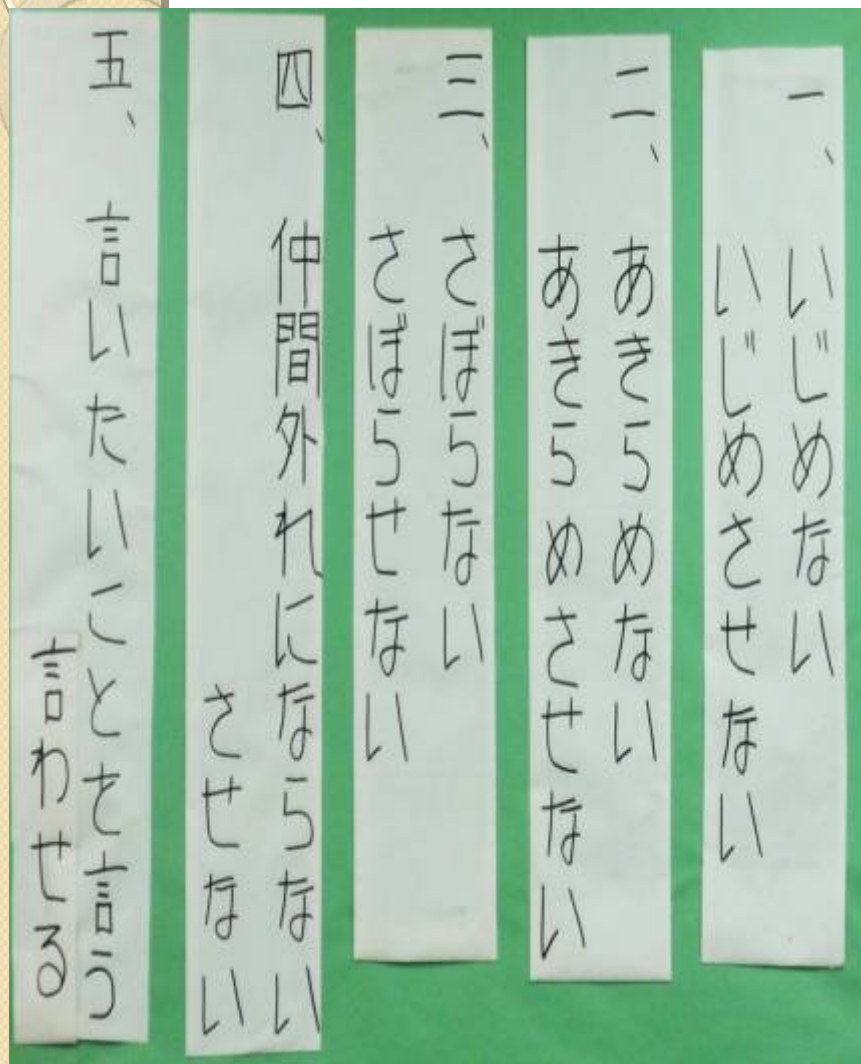 一、いじめない
いじめさせない
二、あきらめない
あきらめさせない
三、さぼらない
さぼらせない
四、仲間外れにならない
させない
五、言いたいことを言う
言わせる